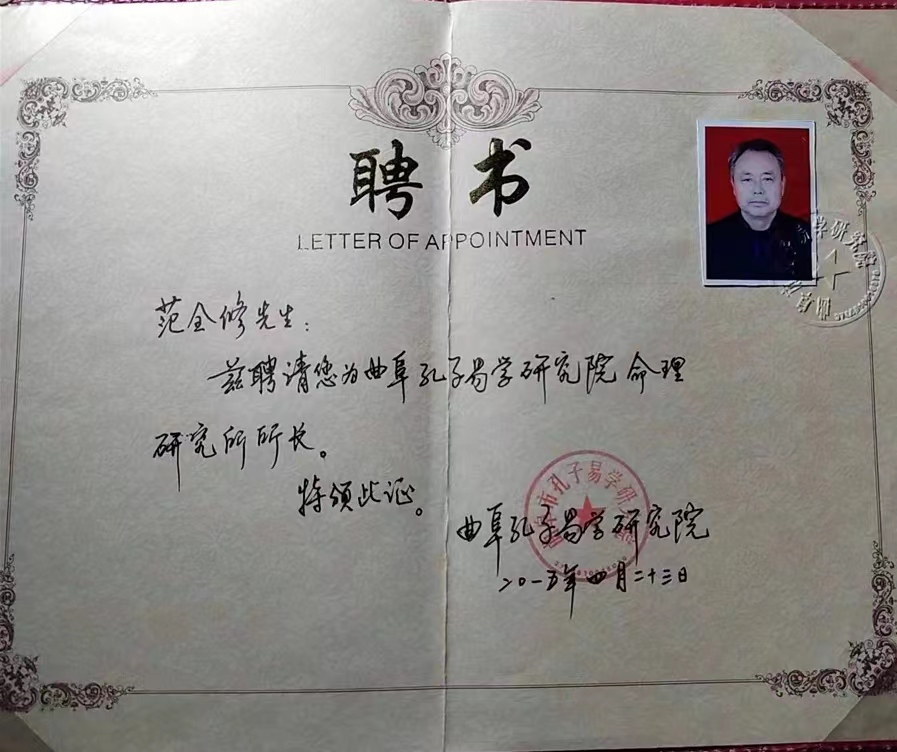 聘书
LETTER OF APPOINTMENT
范全修先生：
兹聘请您为曲阜孔子易学研究院命理
研究所所长。
特颁此证。
曲阜孔子易学研究院
二〇一五年四月二十三日